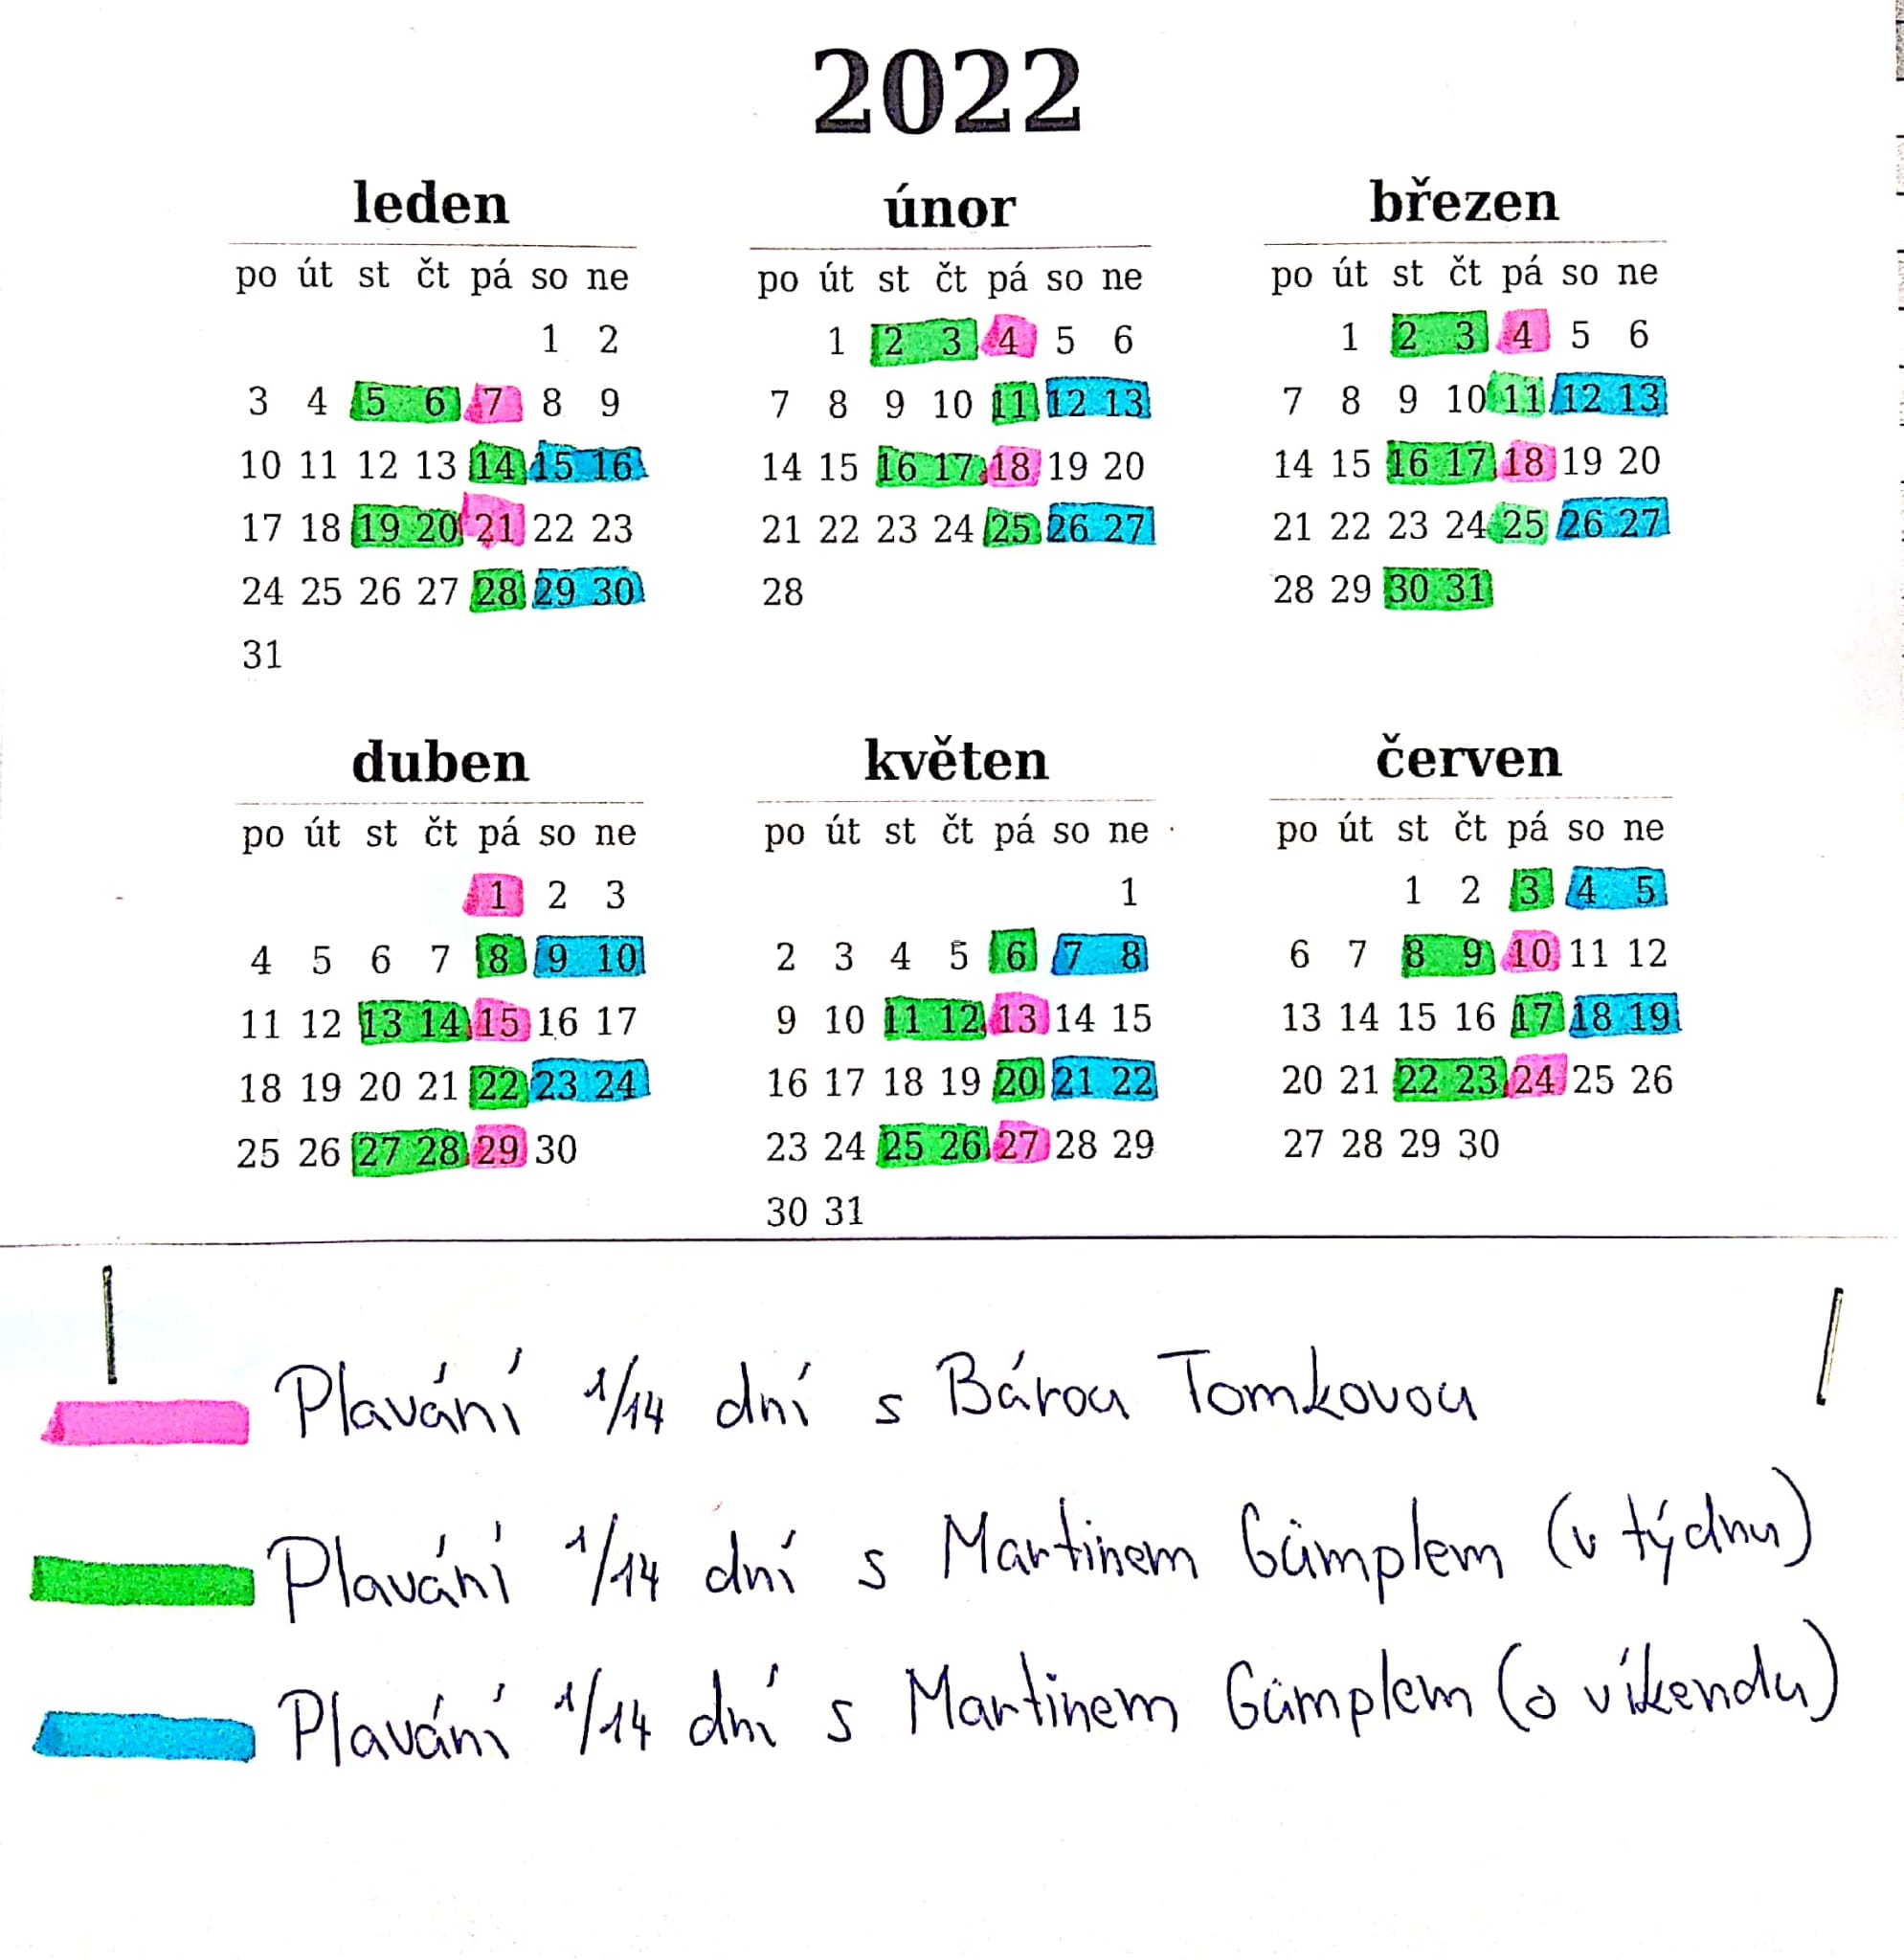 2022
leden
po út st čt pá so ne
1 2
3 4 5 6 7 8 9
10 11 12 13 14 15 16
17 18 19 20 21 22 23
24 25 26 27 28 29 30
31
únor
po út st čt pá so ne
1 2 3 4 5 6
7 8 9 10 11 12 13
14 15 16 17 18 19 20
21 22 23 24 25 26 27
28
březen
po út st čt pá so ne
1 2 3 4 5 6
7 8 9 10 11 12 13
14 15 16 17 18 19 20
21 22 23 24 25 26 27
28 29 30 31
duben
po út st čt pá so ne
1 2 3
4 5 6 7 8 9 10
11 12 13 14 15 16 17
18 19 20 21 22 23 24
25 26 27 28 29 30
květen
po út st čt pá so ne
1
2 3 4 5 6 7 8
9 10 11 12 13 14 15
16 17 18 19 20 21 22
23 24 25 26 27 28 29
30 31
červen
po út st čt pá so ne
1 2 3 4 5
6 7 8 9 10 11 12
13 14 15 16 17 18 19
20 21 22 23 24 25 26
27 28 29 30
Plavání 1/14 dní s Bárou Tomkovou
Plavání 1/14 dní s Martinem Gümplem (v týdnu)
Plavání 1/14 dní s Martinem Gümplem (o víkendu)